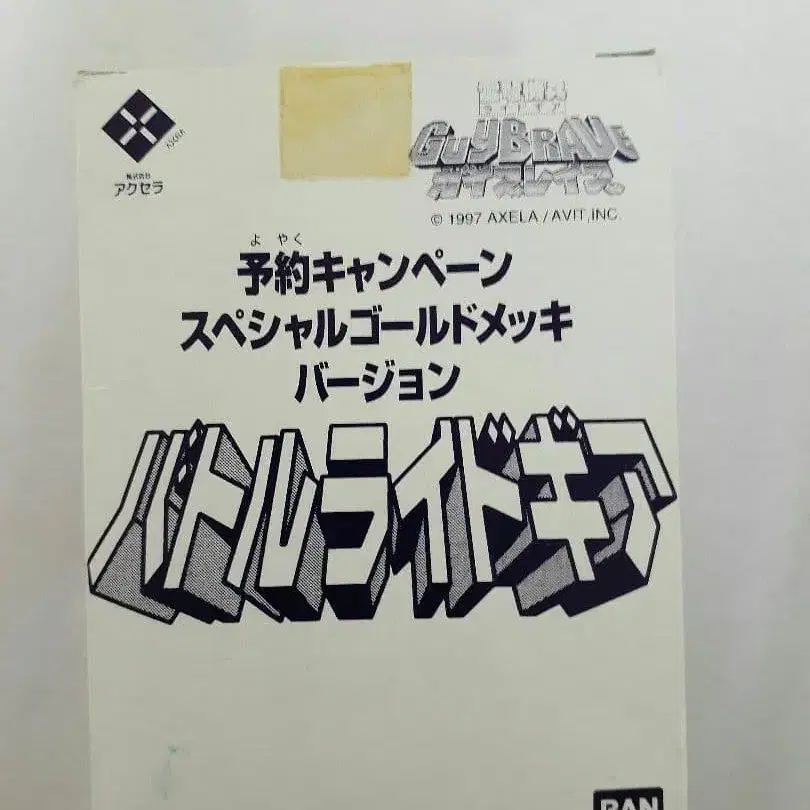 AXELA
株式会社
アクセラ
GUYBRAVE
ガイブレイブ
© 1997 AXELA / AVIT,INC.
よやく
予約キャンペーン
スペシャルゴールドメッキ
バージョン
バトルライドギア
BAN